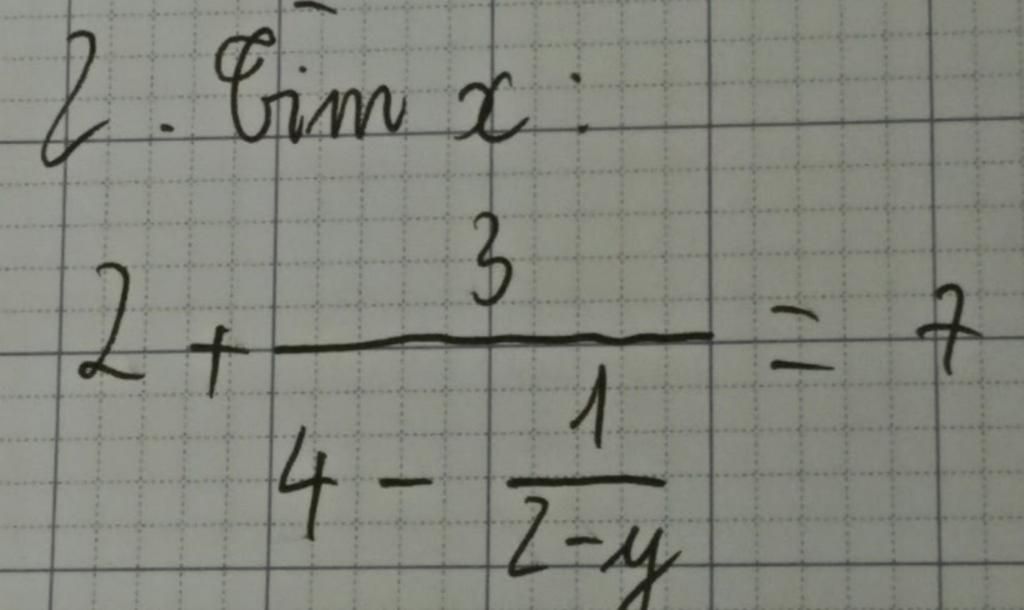 2. Tìm x:
2 + \frac{3}{4 - \frac{1}{2 - y}} = 7